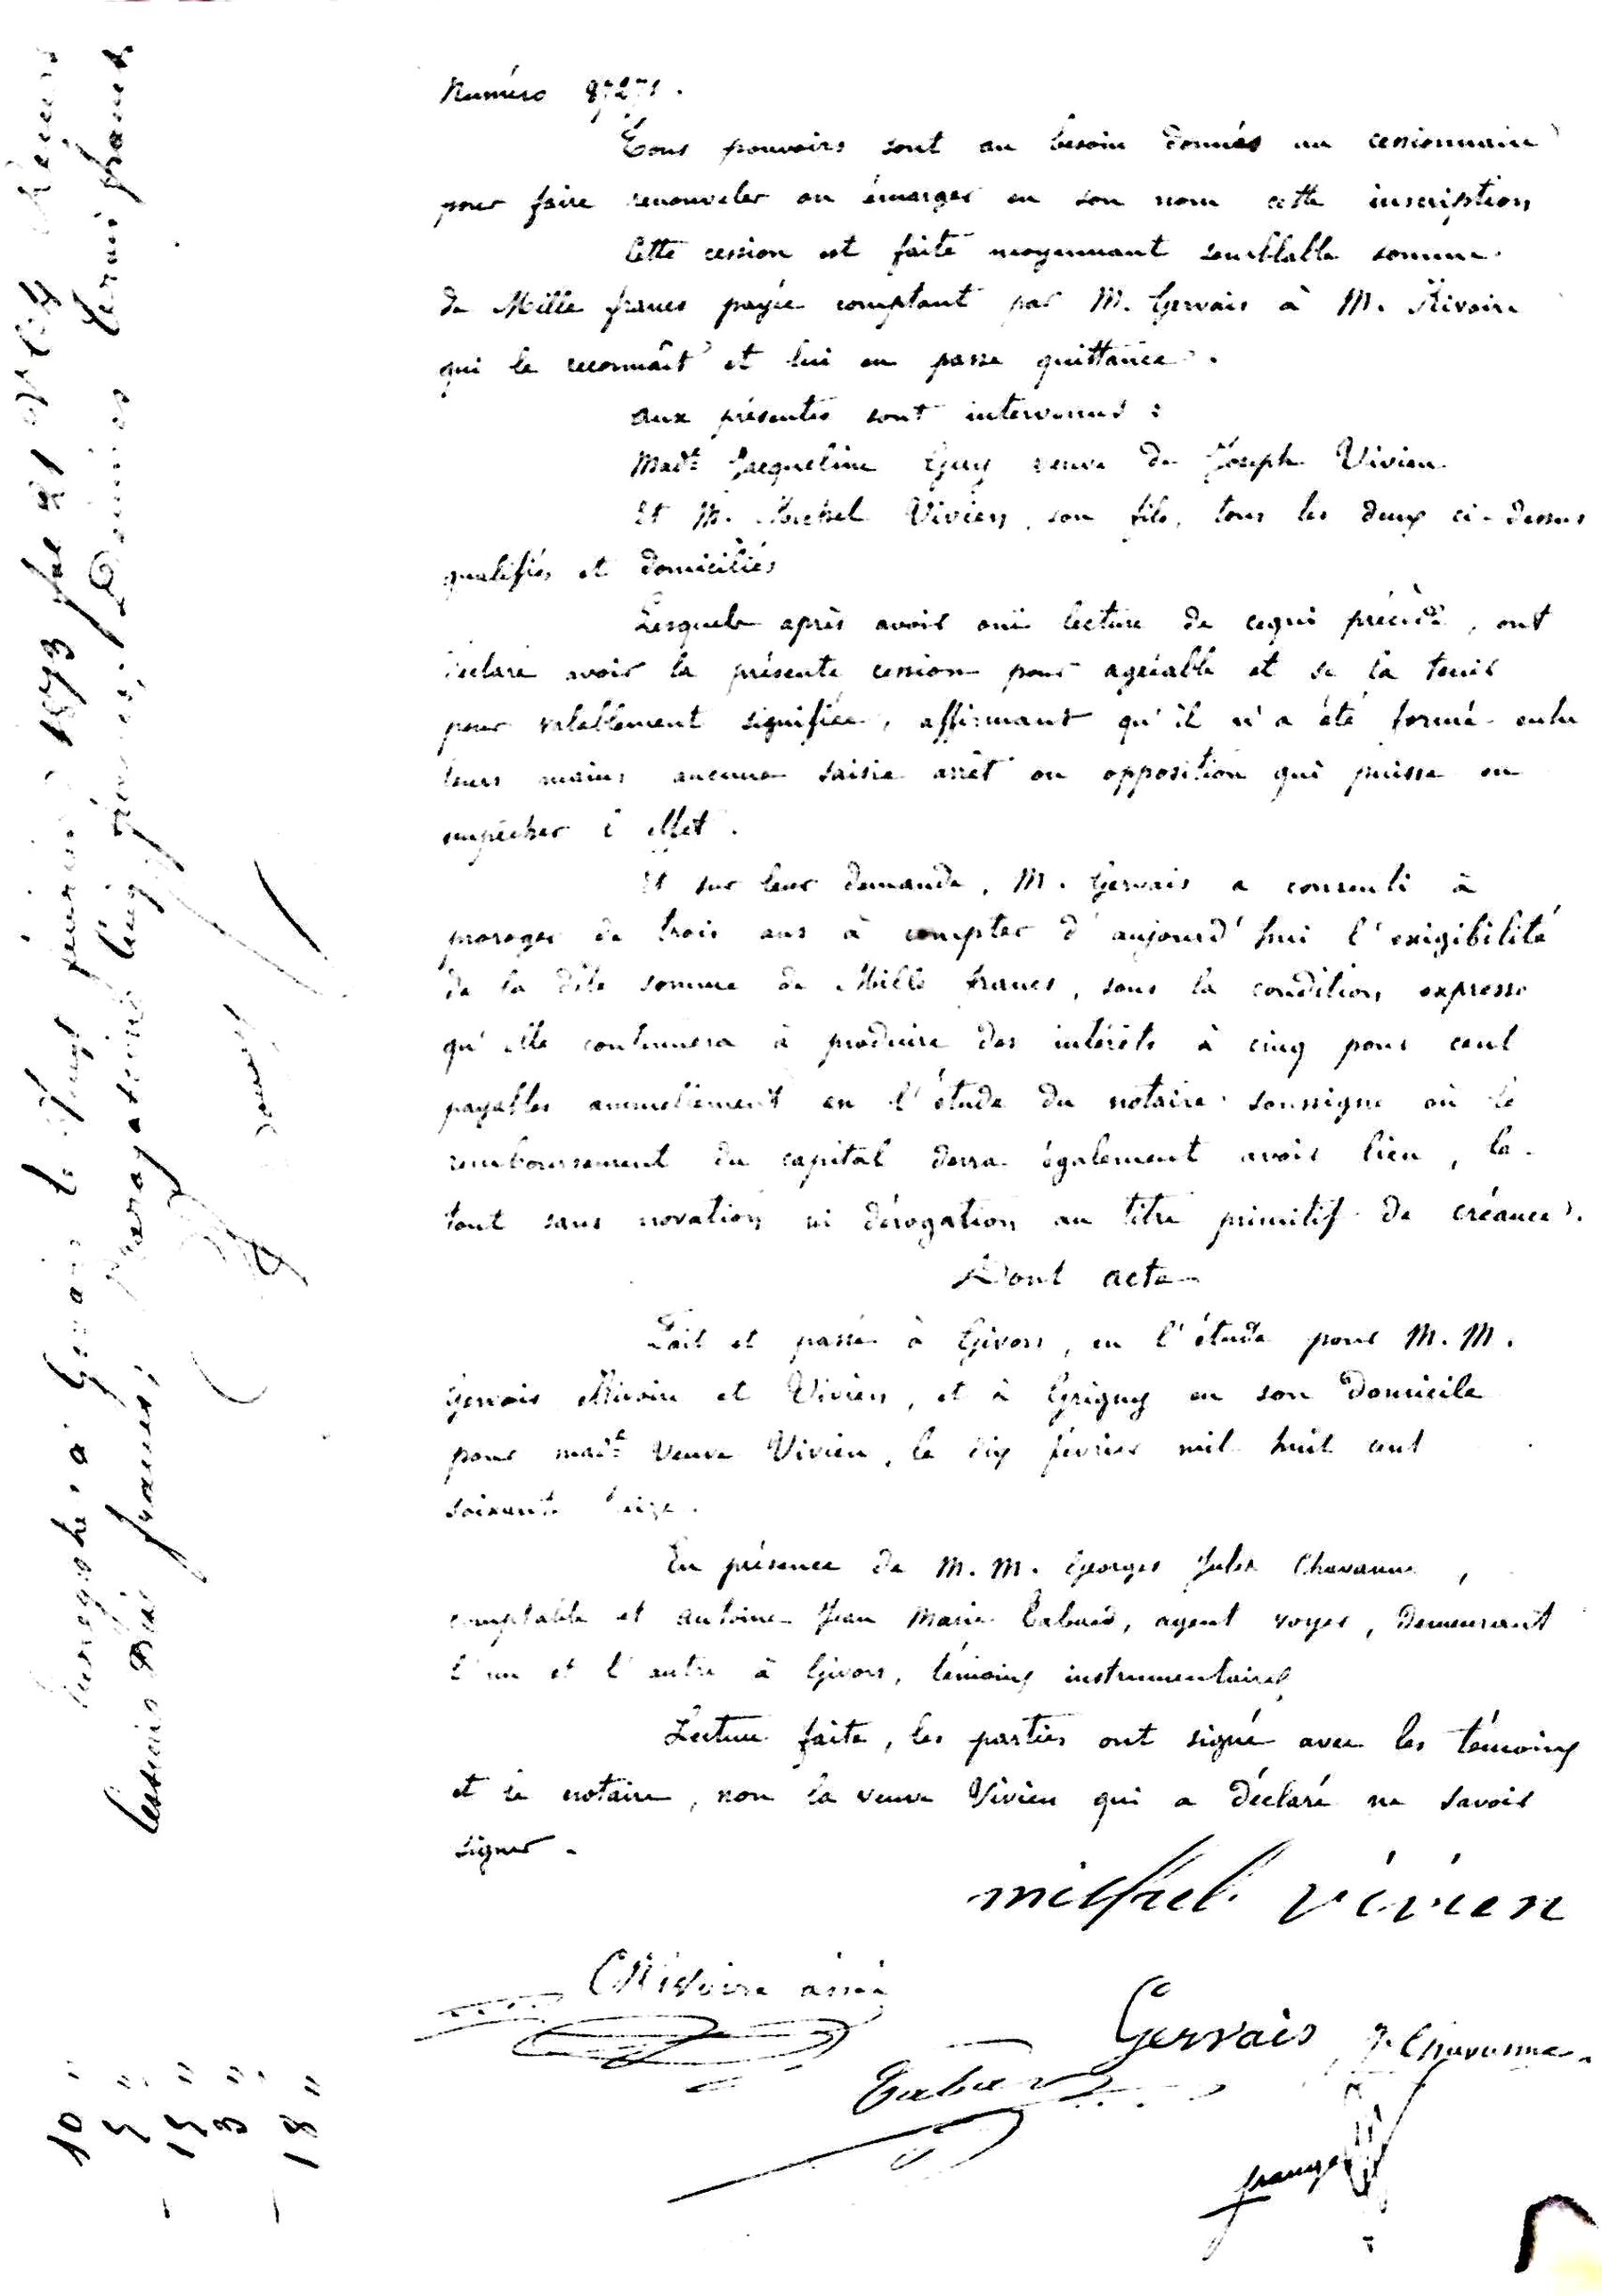 Numéro 87271.
Tous pouvoirs sont au besoin donnés au cessionnaire
pour faire renouveler ou émarger en son nom cette inscription
Cette cession est faite moyennant semblable somme
de Mille francs payée comptant par M. Gervais à M. Rivoire
qui le reconnaît et lui en passe quittance.
Aux présentes sont intervenus :
Made Jacqueline Guy veuve de Joseph Vivien
Et M. Michel Vivien, son fils, tous les deux ci-dessus
qualifiés et domiciliés
Lesquels après avoir ouï lecture de cequi précède, ont
déclaré avoir la présente cession pour agréable et se la tenir
pour valablement signifiée, affirmant qu'il n'a été formé entre
leurs mains aucune saisie arrêt ou opposition qui puisse en
empêcher l'effet.
Et sur leur demande, M. Gervais a consenti à
proroger de trois ans à compter d'aujourd'hui l'exigibilité
de la dite somme de Mille francs, sous la condition expresse
qu'elle continuera à produire des intérêts à cinq pour cent
payables annuellement en l'étude du notaire soussigné où le
remboursement du capital devra également avoir lieu, le
tout sans novation ni dérogation au titre primitif de créance.
Dont acte
Fait et passé à Givors, en l'étude pour M. M.
Gervais Rivoire et Vivien, et à Grigny en son domicile
pour made Veuve Vivien, le dix février mil huit cent
soixante treize.
En présence de M. M. Georges Jules Chavanne,
comptable et Antoine Jean Marie Tabard, agent voyer, demeurant
l'un et l'autre à Givors, témoins instrumentaires
Lecture faite, les parties ont signé avec les témoins
et le notaire, non la veuve Vivien qui a déclaré ne savoir
signer.
michel vivien
Rivoire ainé
Gervais J. Chavanne
Tabard
Enregistré à Givors le Vingt février 1873 fol 21
Cession Dix francs, Prorogation cinq francs, Décimes trois francs
10 "
5 "
15 "
3 "
18 "